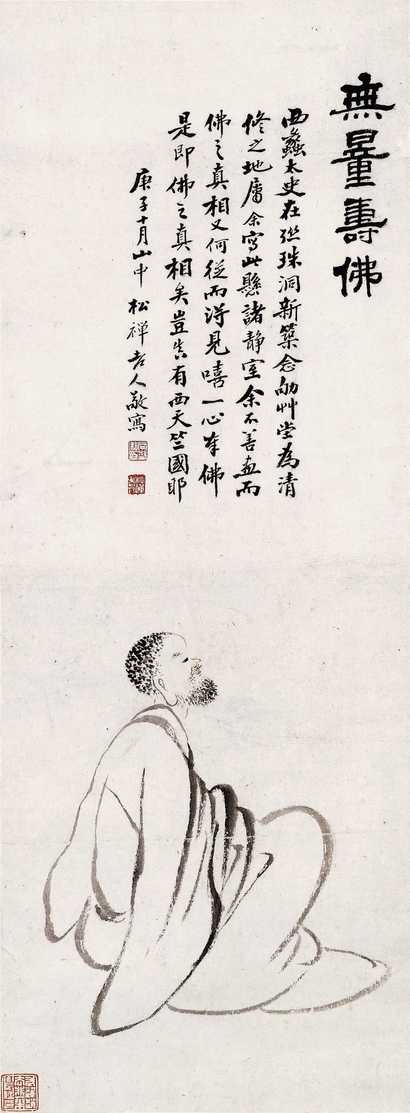 無量壽佛
西蠡太史在聯珠洞新築念劬艸堂為清
修之地屬余寫此懸諸靜室余不善畫而
佛之真相又何從而得見嘻一心奉佛
是即佛之真相矣豈真有西天竺國耶
庚子十月山中 松禅老人敬寫